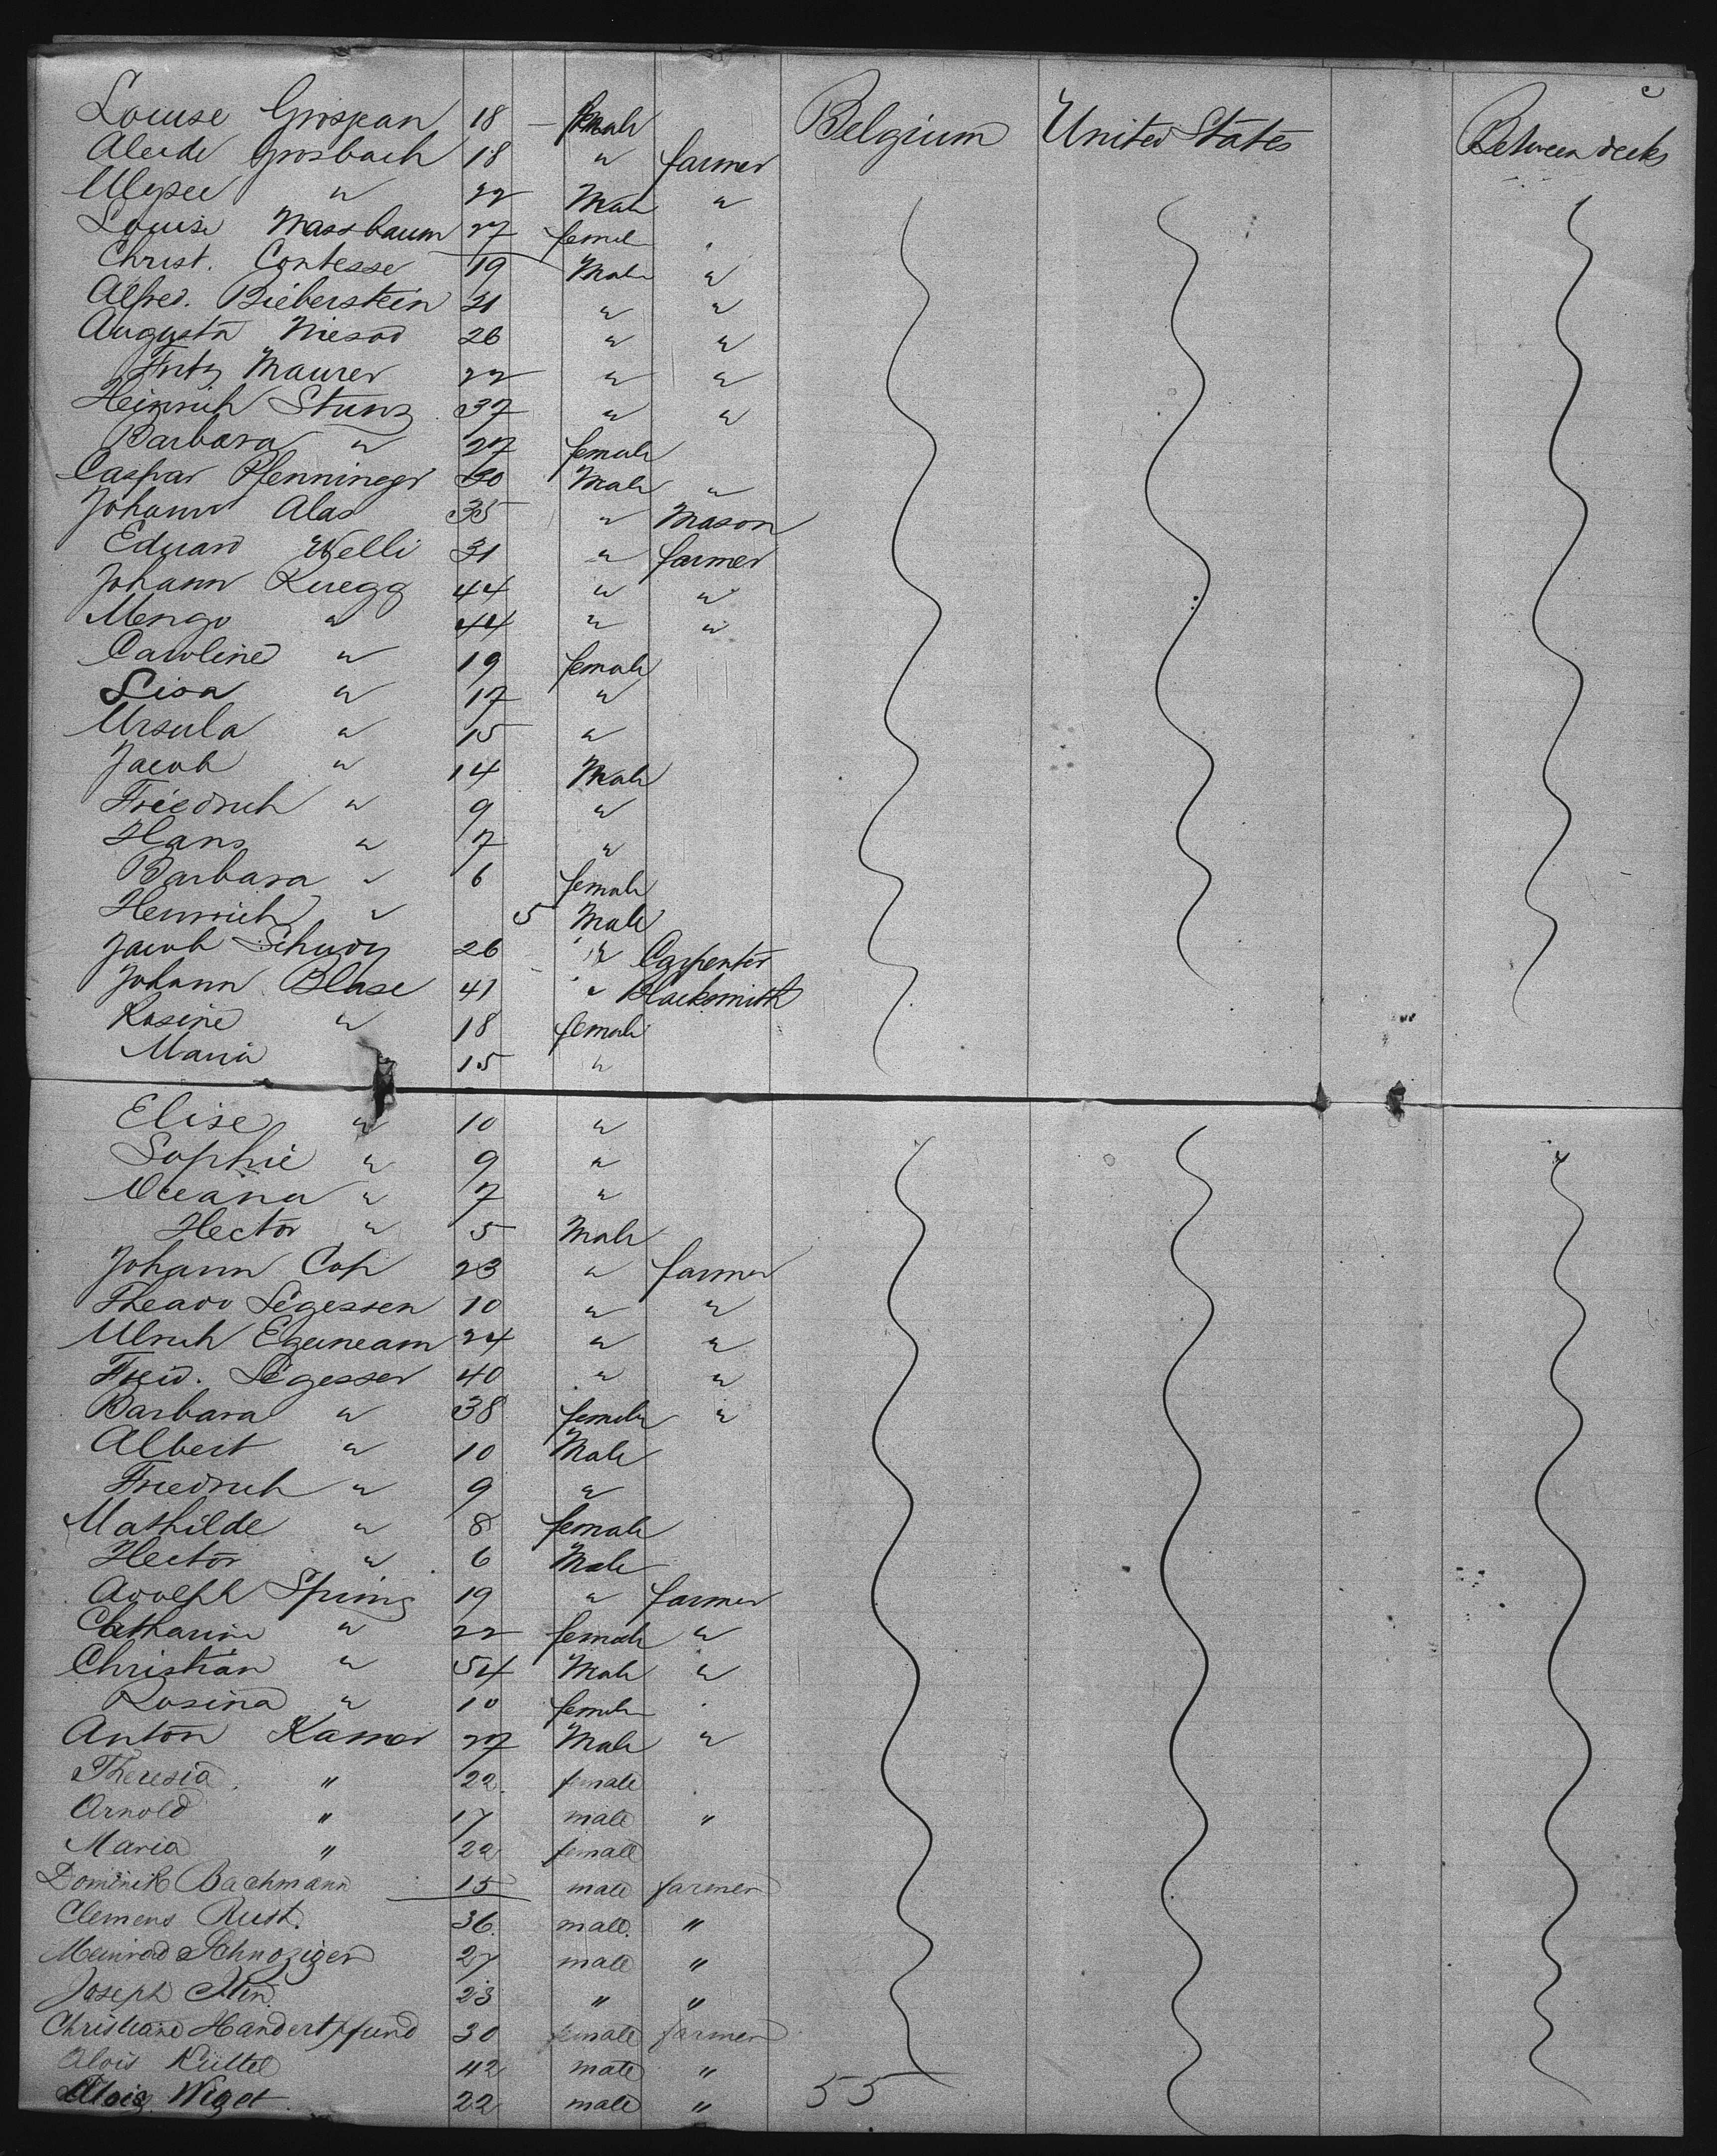 Louise Grosjean 18 female Belgium United States Between decks
Grosbach 18 " farmer
" 22 Male "
Louise Massbaum 27 female
Christ. Contesse 19 Male "
Alfred. Bieberstein 31 " "
Augusta Niesod 26 " "
Fritz Maurer 22 " "
Heinrich Stunz 37 " "
Barbara " 27 female
Caspar Pfenninger 30 Male "
Johann Alas 35 " Mason
Eduard Welli 31 " farmer
Johann Ruegg 44 " "
Mengo " 44 " "
Caroline " 19 female
Lisa " 17 "
Ursula " 15 "
Jacob " 14 Male
Friedrich " 9 "
Hans " 7 "
Barbara " 6 female
Heinrich " 5 Male
Jacob Schudy 26 " Carpenter
Johann Blase 41 " Blacksmith
Rosine " 18 female
Maria 15 "
Elise " 10 "
Sophie " 9 "
Oceana " 7 "
Hector " 5 Male
Johann Cop 23 " farmer
Segessen 10 " "
Ulrich 24 " "
Fried. Segesser 40 " "
Barbara " 38 female "
Albert " 10 Male
Friedrich " 9 "
Mathilde " 8 female
Hector " 6 Male
Adolph Spring 19 " farmer
Catharine " 22 female "
Christian " 54 Male "
Rosina " 10 female
Anton Kamer 27 Male "
Theresia " 22 female
Arnold " 17 male "
Maria " 22 female
Dominik Bachmann 15 male farmer
Clemens Rust. 36 male "
Meinrad Schnoziger 27 male "
Joseph 23 " "
Christiane Handertpfund 30 female farmer
Alois Küttel 42 male "
Alois Wiget 22 male " 55